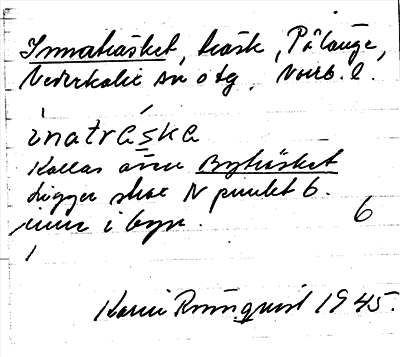 Innaträsket, träsk, Pålänge,
Nederkalix sn o tg, Norrb. l.
ìnatráska
Kallas även Byträsket
Ligger strax N punkt 6.
inne i byn.
6
Karin Runnquist 1945.